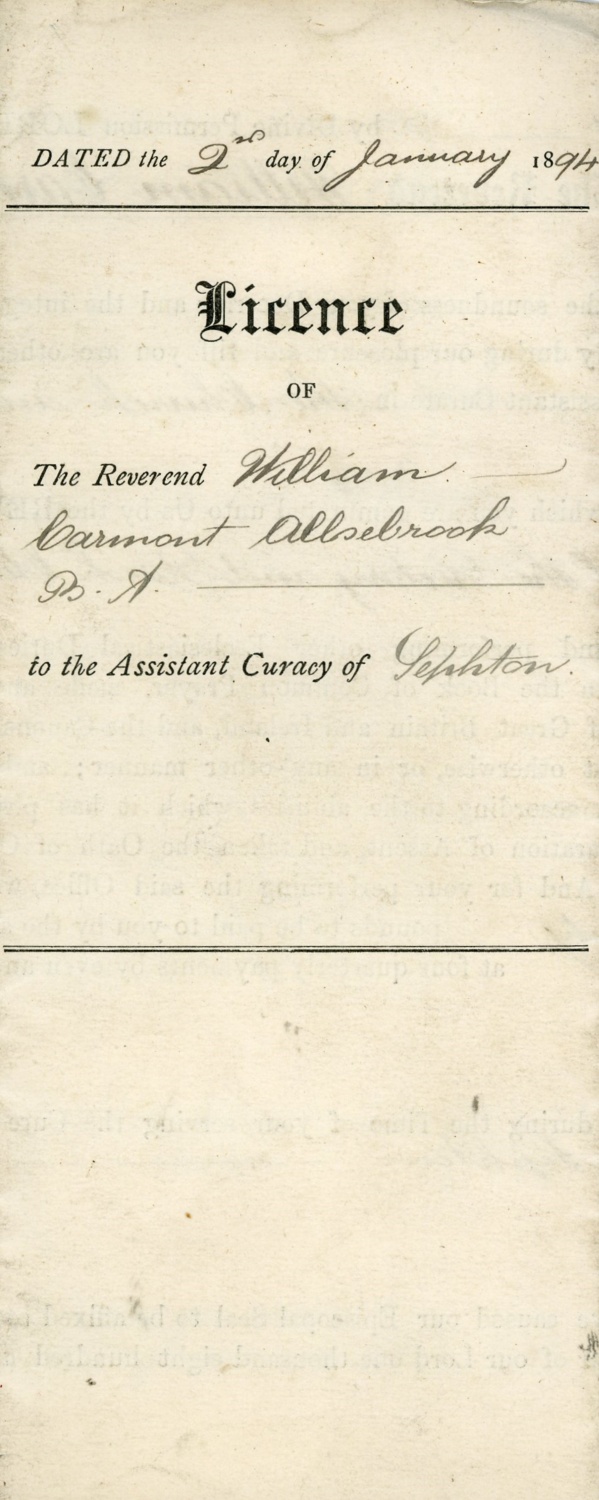 DATED the 2nd day of January 1894
Licence
OF
The Reverend William
Carmont Allsebrook
B. A.
to the Assistant Curacy of Sephton.